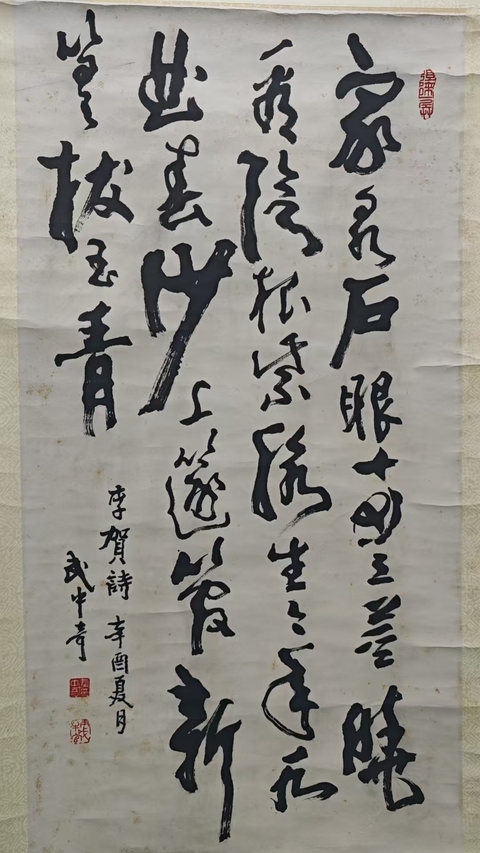 家泉石眼兩三莖曉
看陰根紫脉生今年水
曲春沙上篴管新
篁拔玉青
李賀詩 辛酉夏月
武中奇